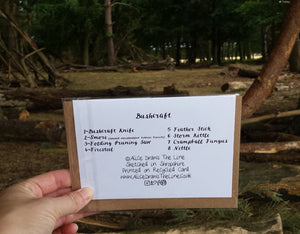 Bushcraft
1-Bushcraft Knife
2-Snare
3-Folding Pruning Saw
4-Firesteel
5 Feather Stick
6 Storm Kettle
7 Crampball Fungus
8 Nettle
©Alice Draws The Line
Sketched in Shropshire
Printed on Recycled Card
www.AliceDrawsTheLine.co.uk